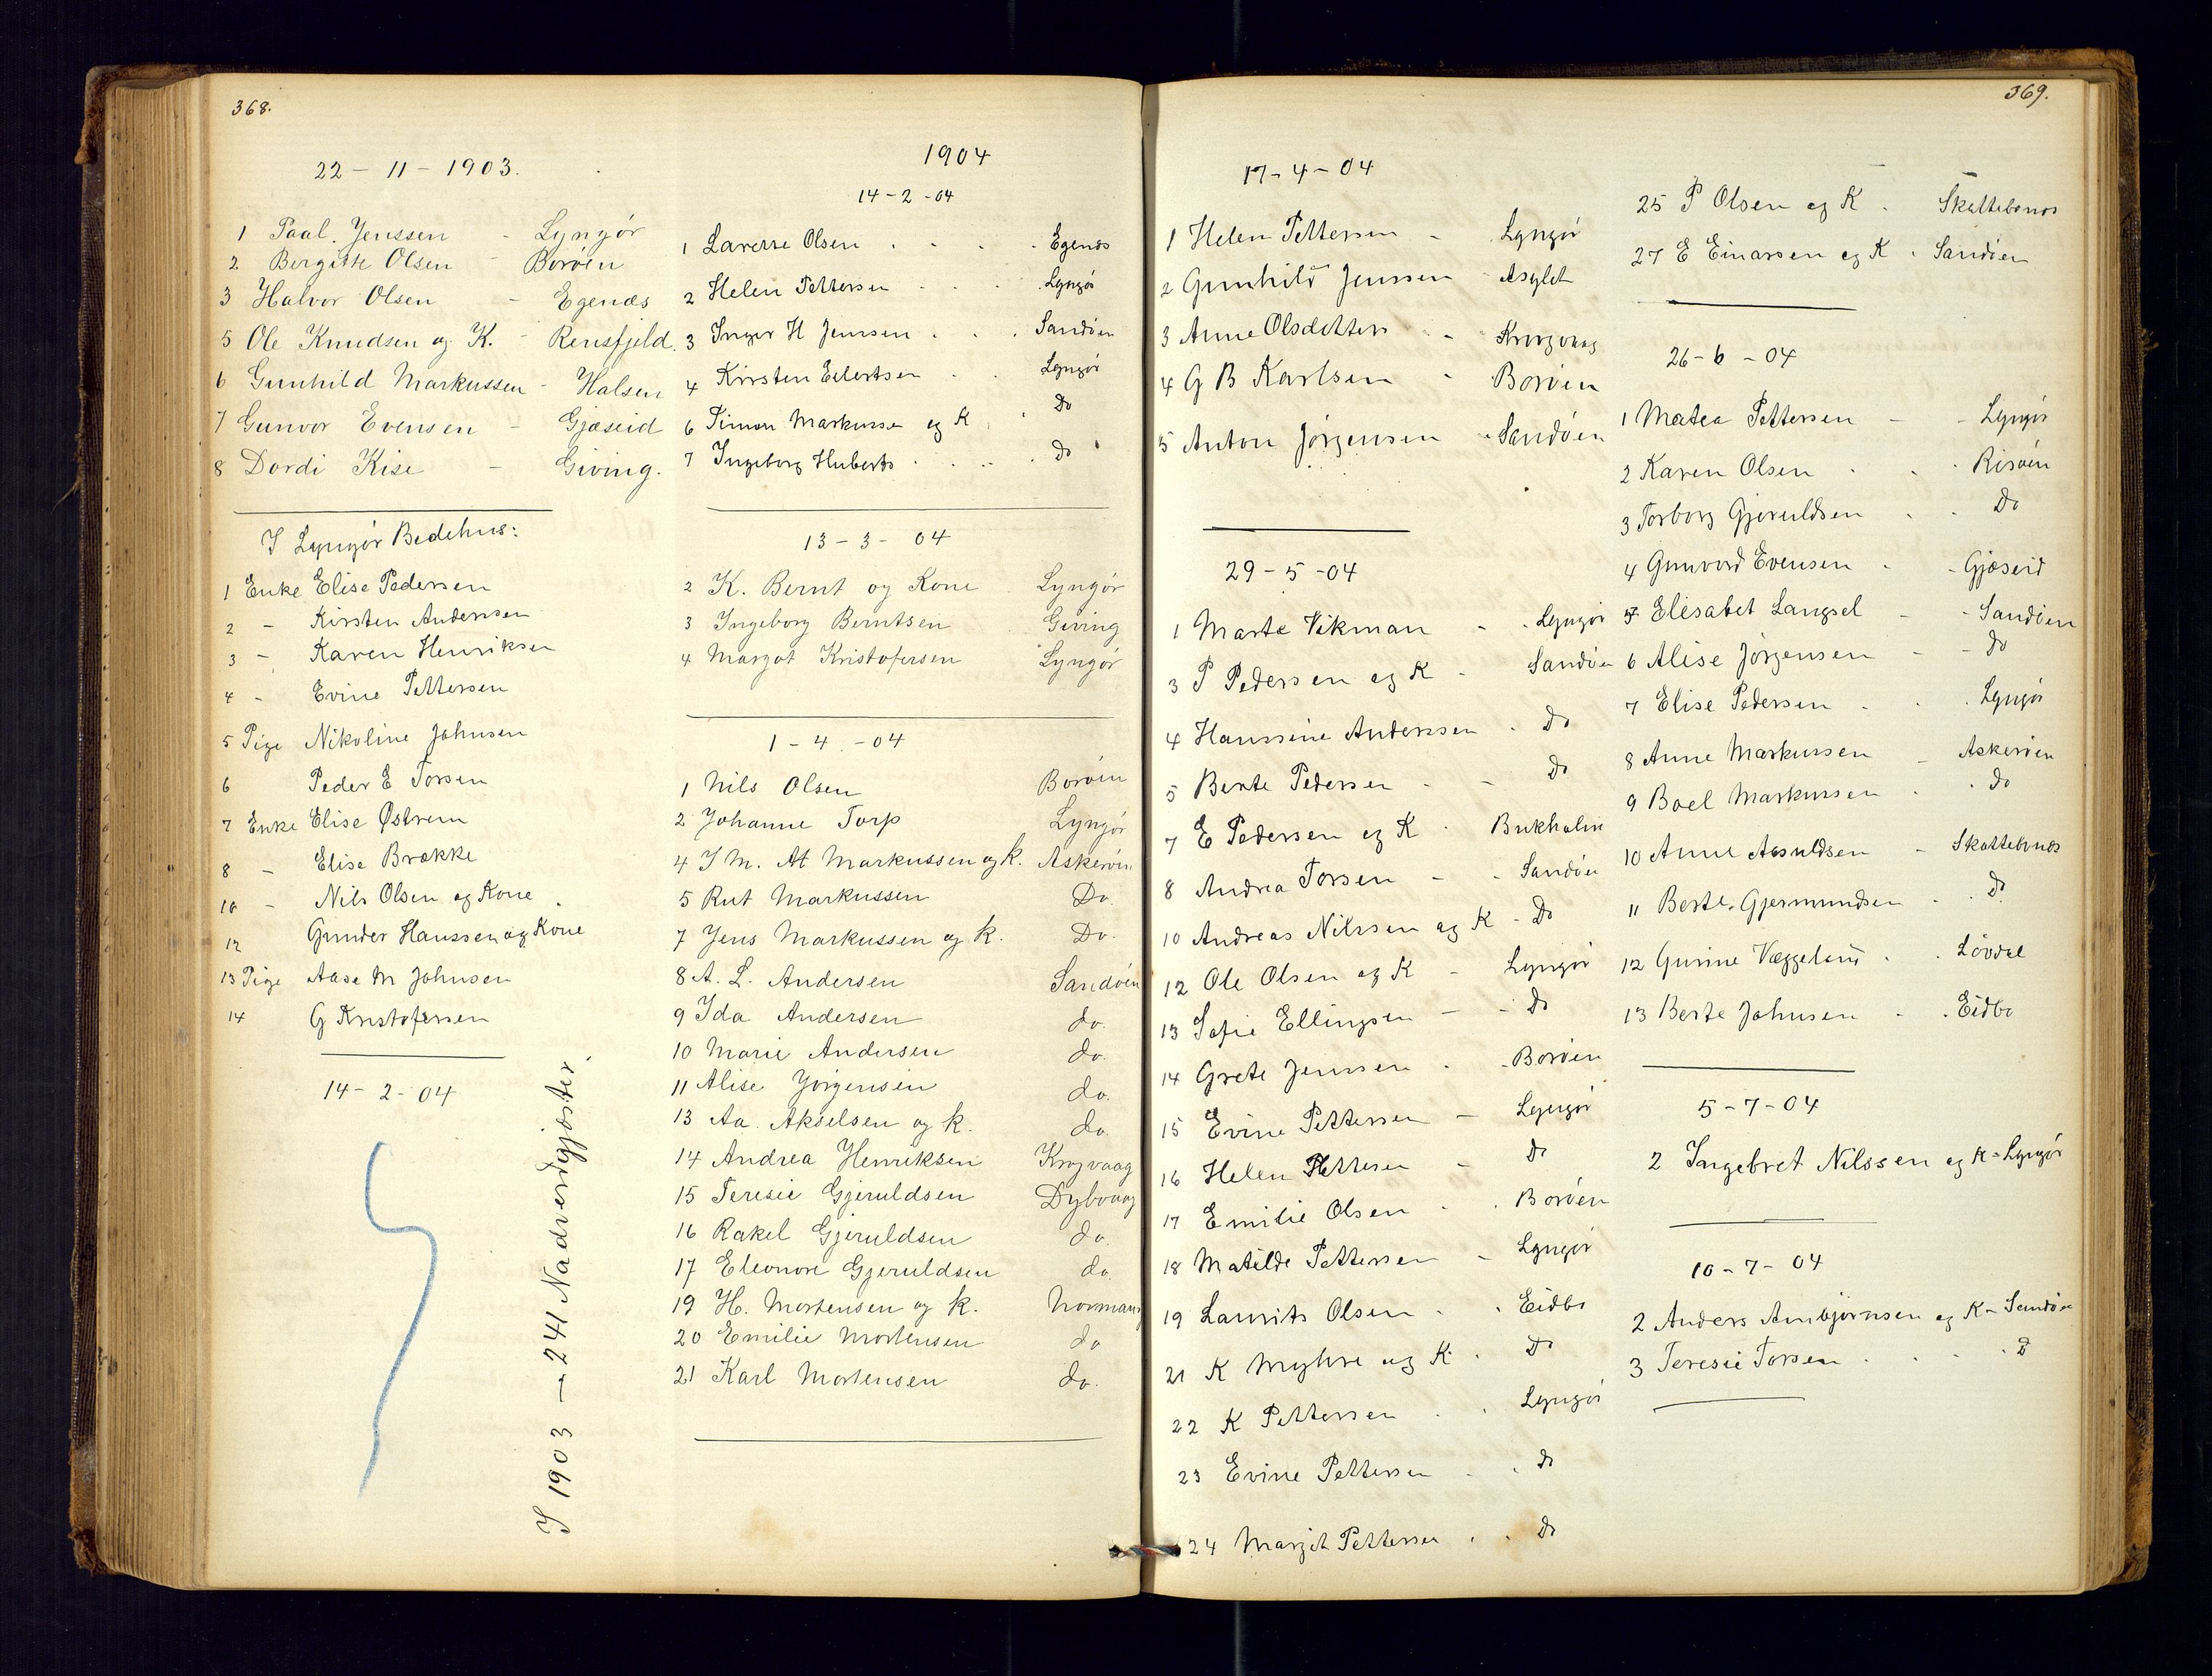 368.
22 - 11 - 1903.
1 Paal. Jenssen - Lyngør
2 Bergitte Olsen - Borøen
3 Halvor Olsen - Egenæs
5 Ole Knudsen og K. - Rensfjeld.
6 Gunhild Markussen - Halsen
7 Gunvor Evensen - Gjæseid
8 Dordi Kise - Giving.
I Lyngør Bedehus:
1 Enke Elise Pedersen
2 - Kirsten Anderssen
3 - Karen Henriksen
4 - Evine Pettersen
5 Pige Nikoline Johnsen
6 Peder E Torsen
7 Enke Elise Østrem
8 - Elise Brække
10 - Nils Olsen og Kone
12 Gunder Hanssen og Kone
13 Pige Aase M Johnsen
14 G Kristofersen
14 - 2 - 04
I 1903 - 241 Nadverdgjæster.
1904
14 - 2 - 04
1 Laresse Olsen . . . . Egenæs
2 Helen Pettersen . . . Lyngør
3 Inger H Jenssen . . . Sandøen
4 Kirsten Eilertsen . . Lyngør
6 Simon Markussen og K . Do
7 Ingeborg Huberts . . . . Do
13 - 3 - 04
2 K. Bernt og Kone Lyngør
3 Ingeborg Berntsen Giving
4 Margot Kristofersen Lyngør
1 - 4 - 04
1 Nils Olsen Borøen
2 Johanne Torp Lyngør
4 I M. At Markussen og k. Askerøen
5 Rut Markussen Do.
7 Jens Markussen og k. Do.
8 A. L. Andersen Sandøen
9 Ida Andersen do.
10 Marie Andersen do.
11 Alise Jørgensen do.
13 Aa. Akselsen og k. do.
14 Andrea Henriksen Krogvaag
15 Teresie Gjeruldsen Dybvaag
16 Rakel Gjeruldsen do.
17 Eleonore Gjeruldsen do.
19 H. Mortensen og k.
20 Emilie Mortensen do
21 Karl Mortensen do.
369.
17 - 4 - 04
1 Helen Pettersen - Lyngør
2 Gunhild Jenssen - Asylet
3 Anne Olsdotter - Krogvaag
4 G B Karlsen - Borøen
5 Anton Jørgensen - Sandøen
29 - 5 - 04
1 Marte Vikman - . Lyngør
3 P Pedersen og K - Sandøen
4 Hanssine Anderssen . Do
5 Berte Pedersen - - Do
7 E Pedersen og K . Bukholm
8 Andrea Torsen - - Sandøen
10 Andreas Nilssen og K - Do
12 Ole Olsen og K - Lyngør
13 Sofie Ellingsen - - Do
14 Grete Jenssen . . Borøen
15 Evine Pettersen - Lyngør
16 Helen Pettersen - Do
17 Emilie Olsen . . Borøen
18 Matilde Pettersen - Lyngør
19 Laurits Olsen . . Eidbo
21 K Myhre og K . Do
22 K Pettersen . . Lyngør
23 Evine Pettersen . . Do
24 Margit Pettersen . . Do
25 P Olsen og K . Skottebonæs
27 E Einarsen og K . Sandøen
26 - 6 - 04
1 Matea Pettersen - - Lyngør
2 Karen Olsen . . . Risøen
3 Torborg Gjeruldsen . . Do
4 Gunvord Evensen . - Gjæseid
5 Elisabet Langsel - - Sandøen
6 Alise Jørgensen - - Do
7 Elise Pedersen . . . Lyngør
8 Anne Markussen - Askerøen
9 Boel Markussen . . Do
10 Anne Aasuldsen - Skottebonæs
11 Berte Gjermundsen . . Do
12 Gurine Væggeland . . Løvdal
13 Berte Johnsen - . Eidbo
5 - 7 - 04
2 Ingebret Nilssen og K - Lyngør
10 - 7 - 04
2 Anders Arnbjørnsen og K - Sandøen
3 Teresie Torsen . . . Do